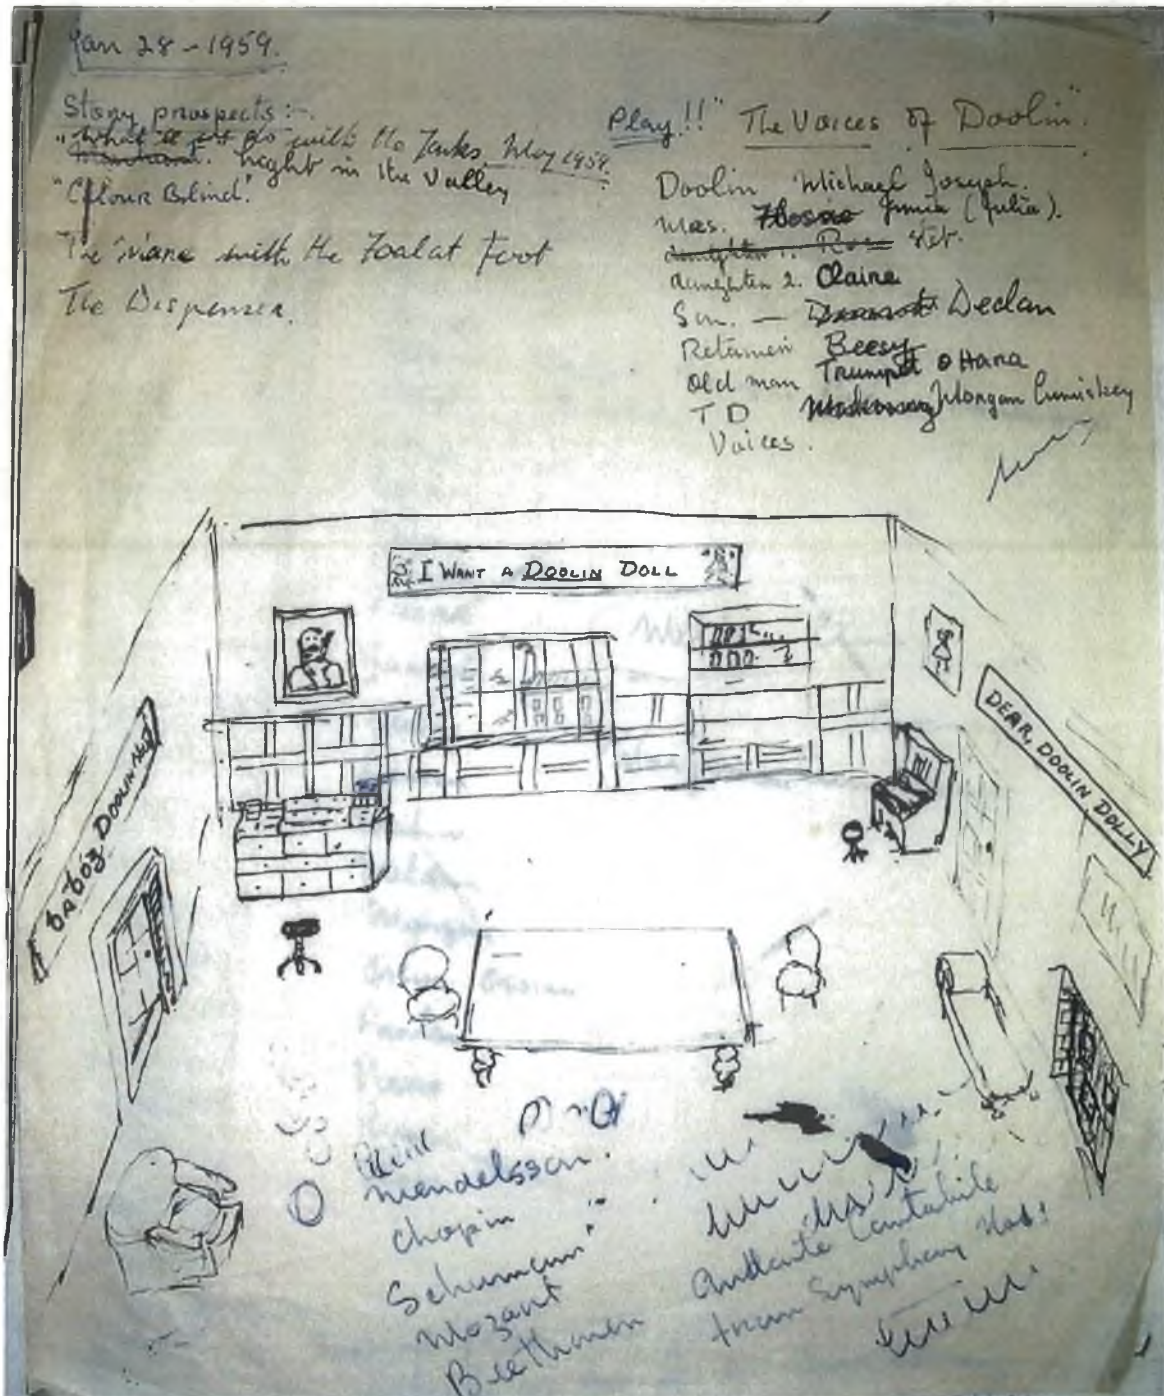 Jan 28 - 1959.
Story prospects:-
"What to do with the Tanks, May 1959.
Night in the Valley
"Colour Blind".
The Mare with the Foal at Foot
The Dispenser.
Play!! "The Voices of Doolin".
Doolin Michael Joseph.
Mrs. Junia (Julia).
daughter 1. Rose stet.
daughter 2. Claire
Son. — Declan
Retainer Beesy
Old man Trumpet O Hara
T D Mongan Cumiskey
Voices.
I WANT A DOOLIN DOLL
DEAR, DOOLIN DOLLY
BABÓG DOOLIN
Mendelsson.
Chopin "
Schumann "
Mozart
Beethoven Andante Cantabile
from Symphony No 1